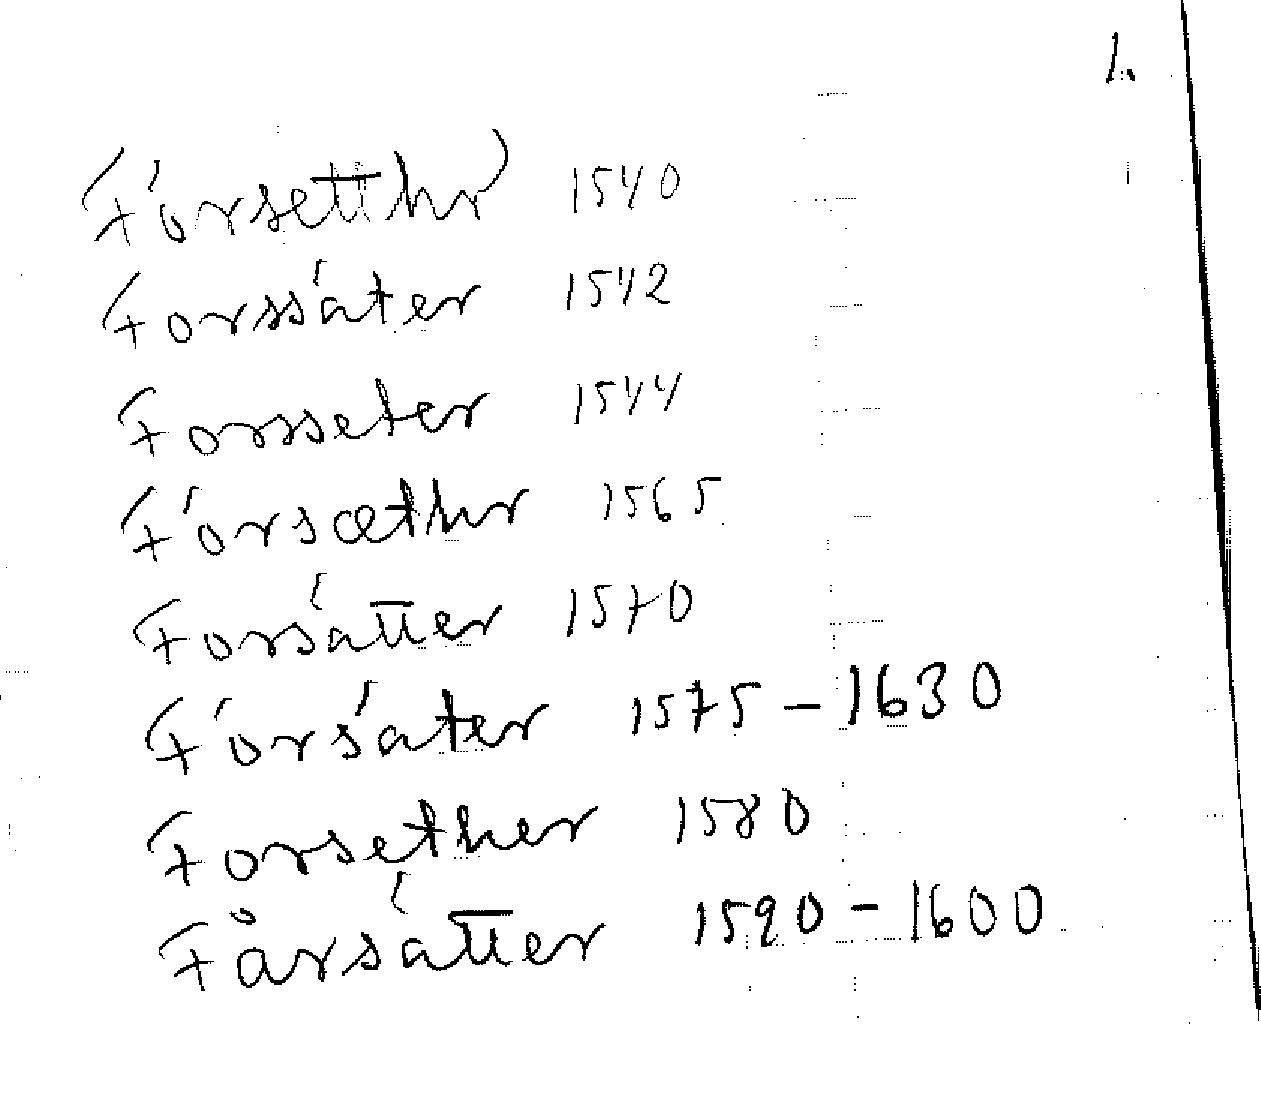 1.
Forsetthr 1540
Forssäter 1542
Forsseter 1544
Forsæthr 1565
Forsätter 1570
Forsäter 1575 – 1630
Forsether 1580
Fårsätter 1590 – 1600